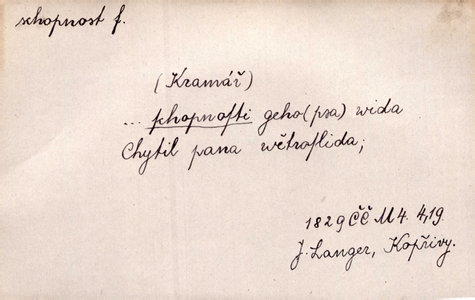 schopnost f.
(Kramář)
... schopnosti geho (psa) wida
Chytil pana wětroslida;
1829 ČČM 4. 4,19.
J. Langer, Kopřivy.